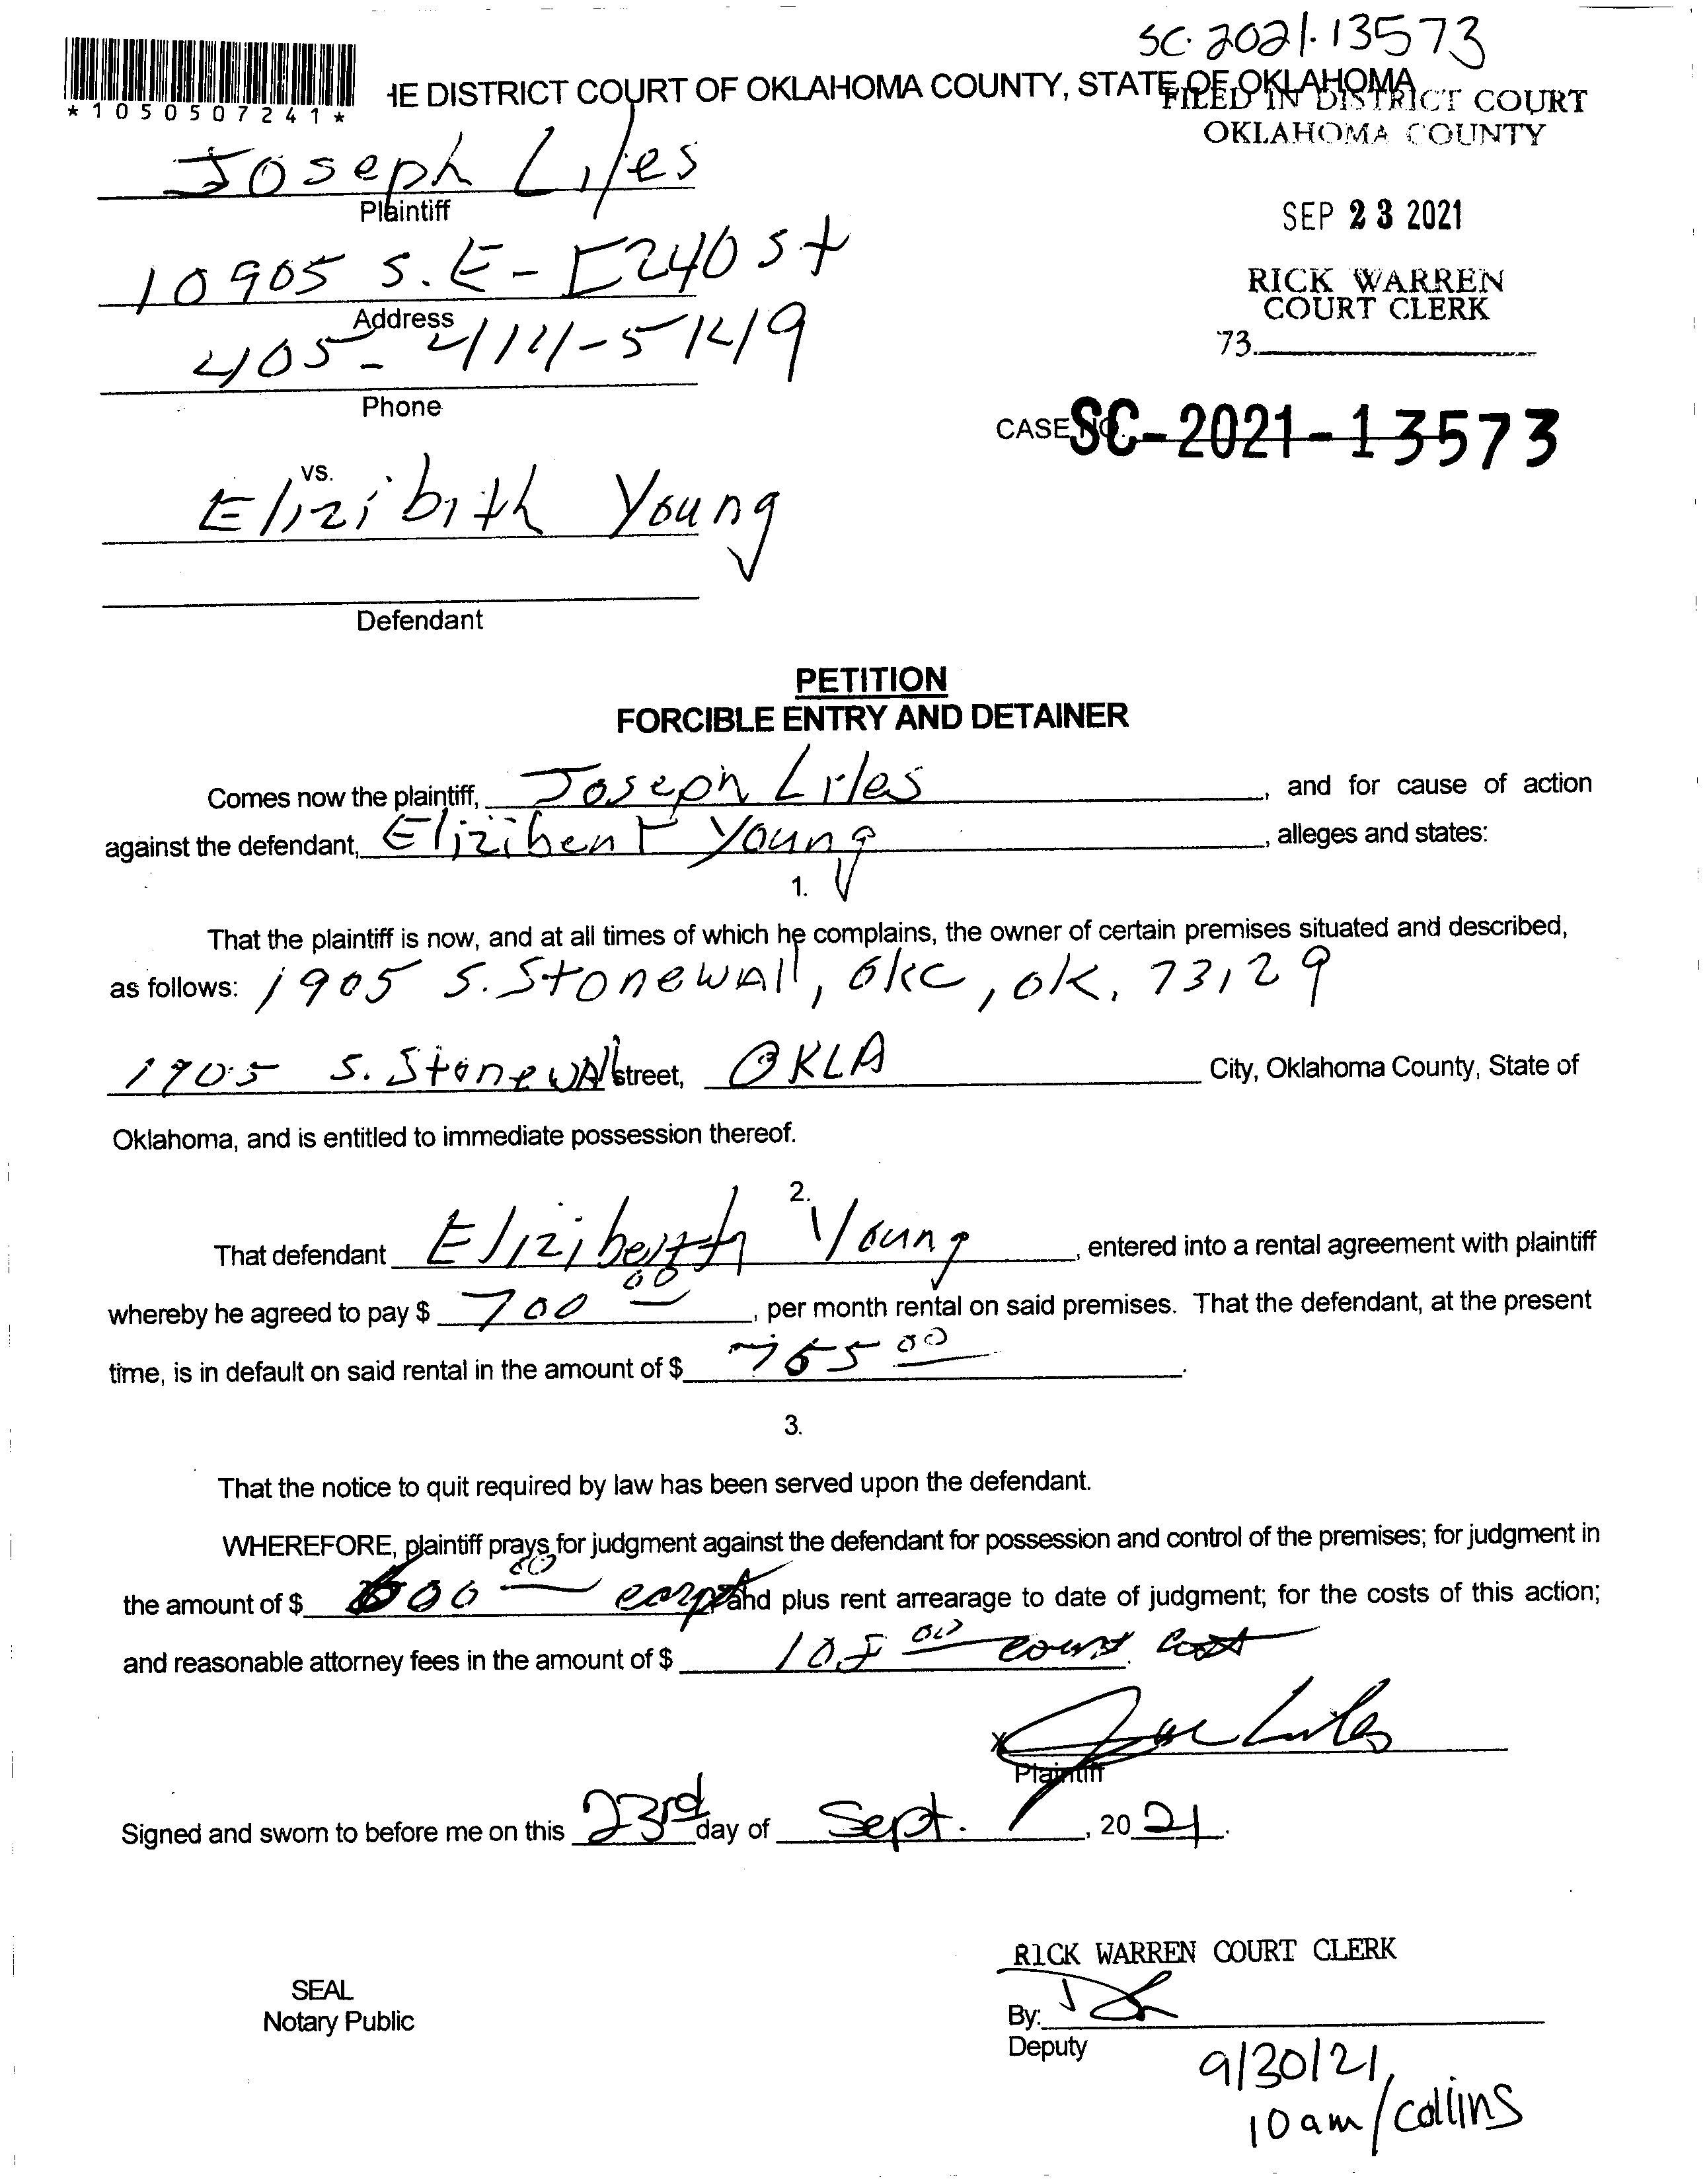 SC-2021-13573
*1050507241*
IE DISTRICT COURT OF OKLAHOMA COUNTY, STATE OF OKLAHOMA
FILED IN DISTRICT COURT
OKLAHOMA COUNTY
Joseph Liles
Plaintiff
SEP 23 2021
10905 S.E - E240 St
Address
RICK WARREN
COURT CLERK
73.
405-414-5149
Phone
CASE NO. SC-2021-13573
vs.
Elizibith Young
Defendant
PETITION
FORCIBLE ENTRY AND DETAINER
Comes now the plaintiff, Joseph Liles, and for cause of action
against the defendant, Young, alleges and states:
1.
That the plaintiff is now, and at all times of which he complains, the owner of certain premises situated and described,
as follows: 1905 S. Stonewall, OKC, OK. 73129
1905 S. Stonewall street, OKLA City, Oklahoma County, State of
Oklahoma, and is entitled to immediate possession thereof.
2.
That defendant Young, entered into a rental agreement with plaintiff
whereby he agreed to pay $ 700 00, per month rental on said premises. That the defendant, at the present
time, is in default on said rental in the amount of $ 765 00.
3.
That the notice to quit required by law has been served upon the defendant.
WHEREFORE, plaintiff prays for judgment against the defendant for possession and control of the premises; for judgment in
the amount of $ 00 and plus rent arrearage to date of judgment; for the costs of this action;
and reasonable attorney fees in the amount of $ 00 court cost
x Joe Liles
Plaintiff
Signed and sworn to before me on this 23rd day of Sept., 2021.
RICK WARREN COURT CLERK
SEAL
Notary Public
By:
Deputy
9/30/21
10am/Collins